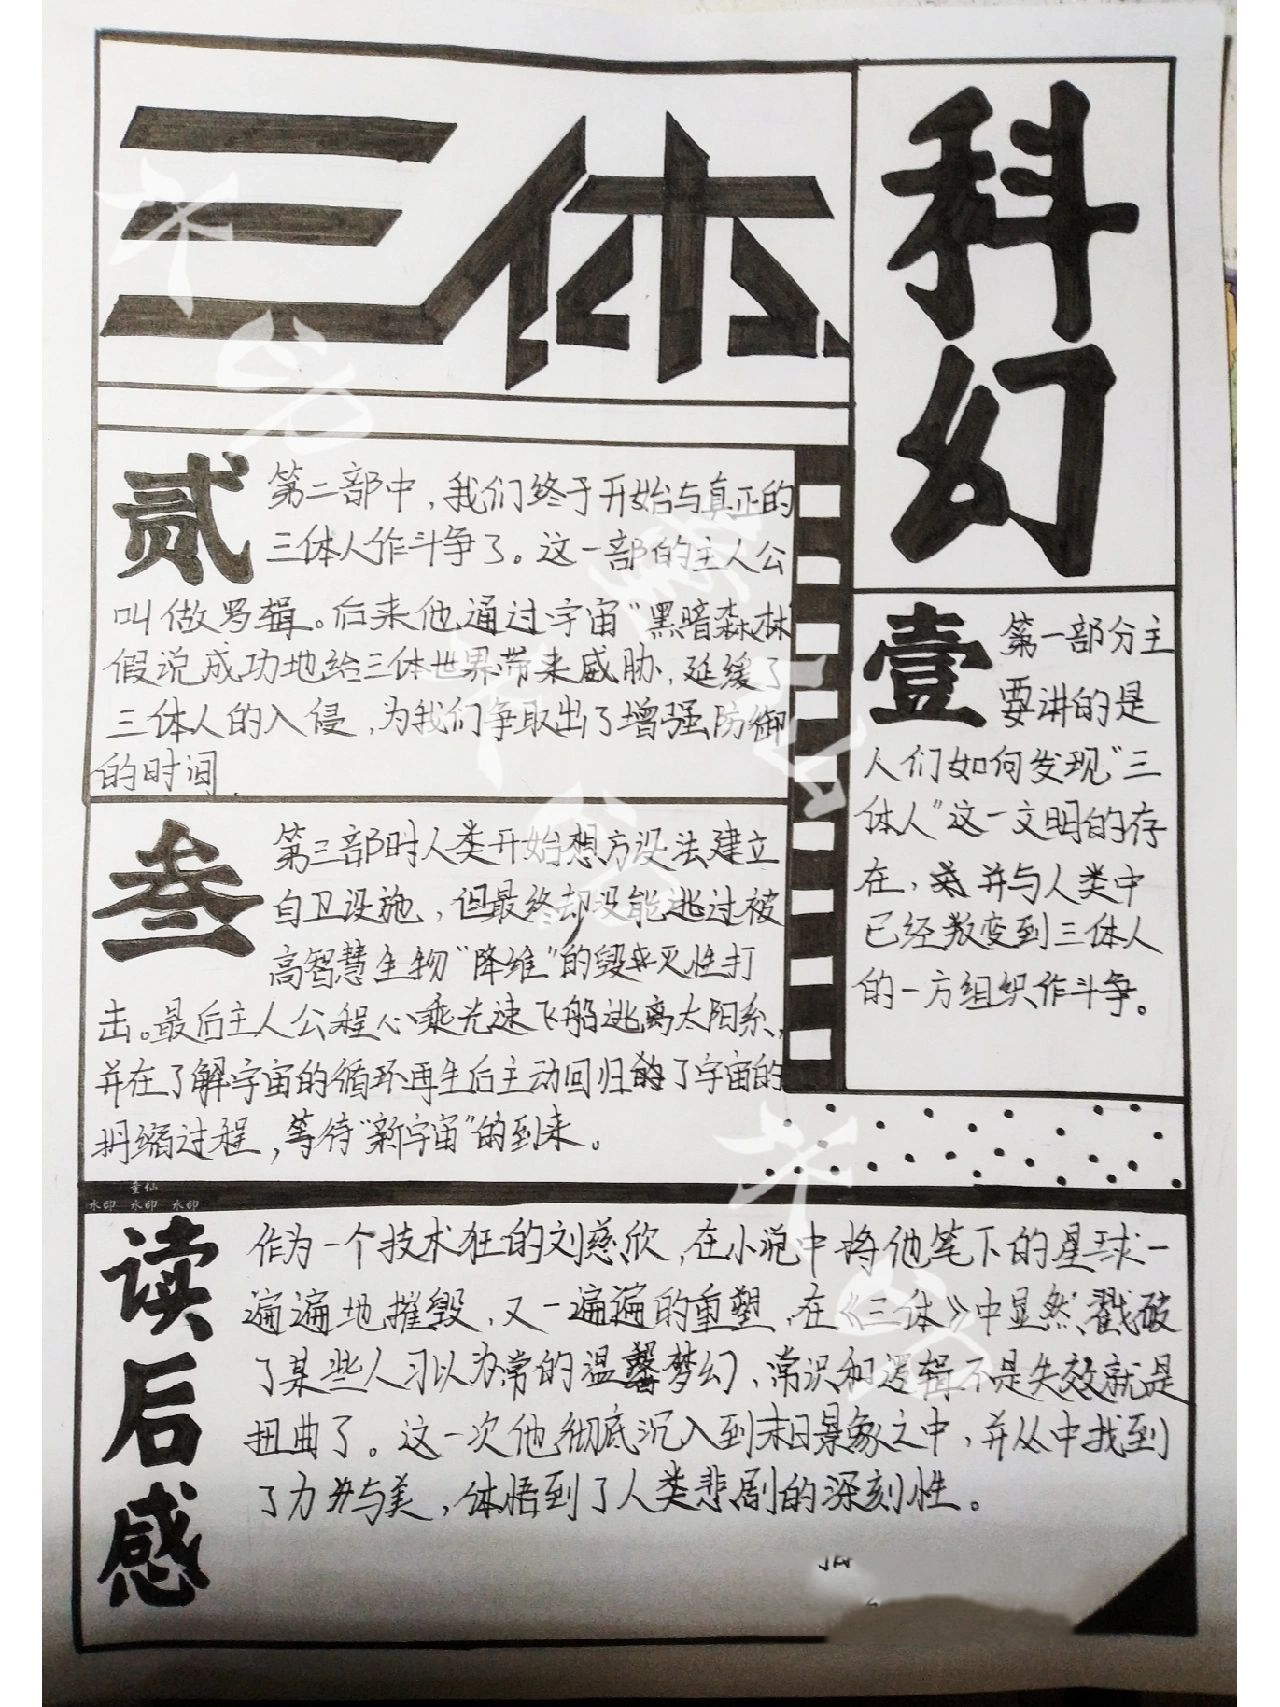 三体
科幻
壹
第一部分主
要讲的是
人们如何发现“三
体人”这一文明的存
在，并与人类中
已经叛变到三体人
的一方组织作斗争。
贰
第二部中，我们终于开始与真正的
三体人作斗争了。这一部的主人公
叫做罗辑。后来他通过宇宙“黑暗森林
假说成功地给三体世界带来威胁，延缓了
三体人的入侵，为我们争取出了增强防御
的时间.
叁
第三部时人类开始想方设法建立
自卫设施，但最终却没能逃过被
高智慧生物“降维”的毁灭性打
击。最后主人公程心乘光速飞船逃离太阳系，
并在了解宇宙的循环再生后主动回归了宇宙的
坍缩过程，等待“新宇宙”的到来。
童仙
水印 水印 水印
读后感
作为一个技术狂的刘慈欣，在小说中将他笔下的星球一
遍遍地摧毁，又一遍遍的重塑，在《三体》中显然戳破
了某些人习以为常的温馨梦幻、常识和逻辑不是失效就是
扭曲了。这一次他彻底沉入到末日景象之中，并从中找到
了力与美，体悟到了人类悲剧的深刻性。
水印
童仙
水印
水印